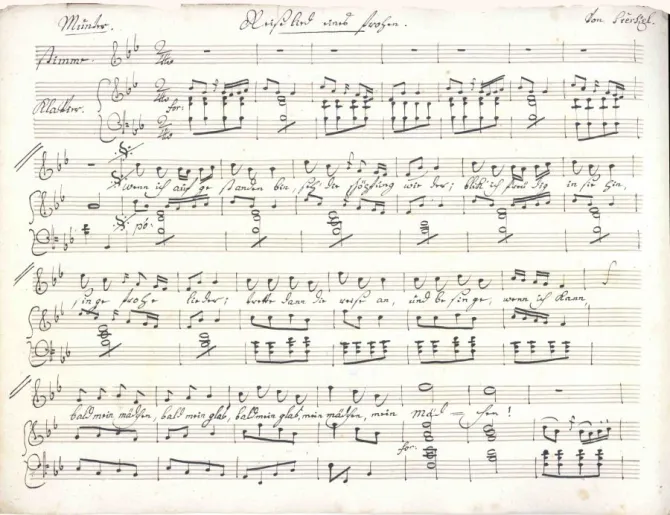 Munter. Reiselied eines Frohen. Von
Stimme.
Klavier. for:
wenn ich auf ge standen bin, die Schöpfung wie der; blick ich in sie hin,
po:
singe frohe lieder; trette dann die reise an, und be singe, wenn ich kann,
bald mein mädchen, bald mein glas, bald mein glas, mein mädchen, mein Mäd = chen!
for: